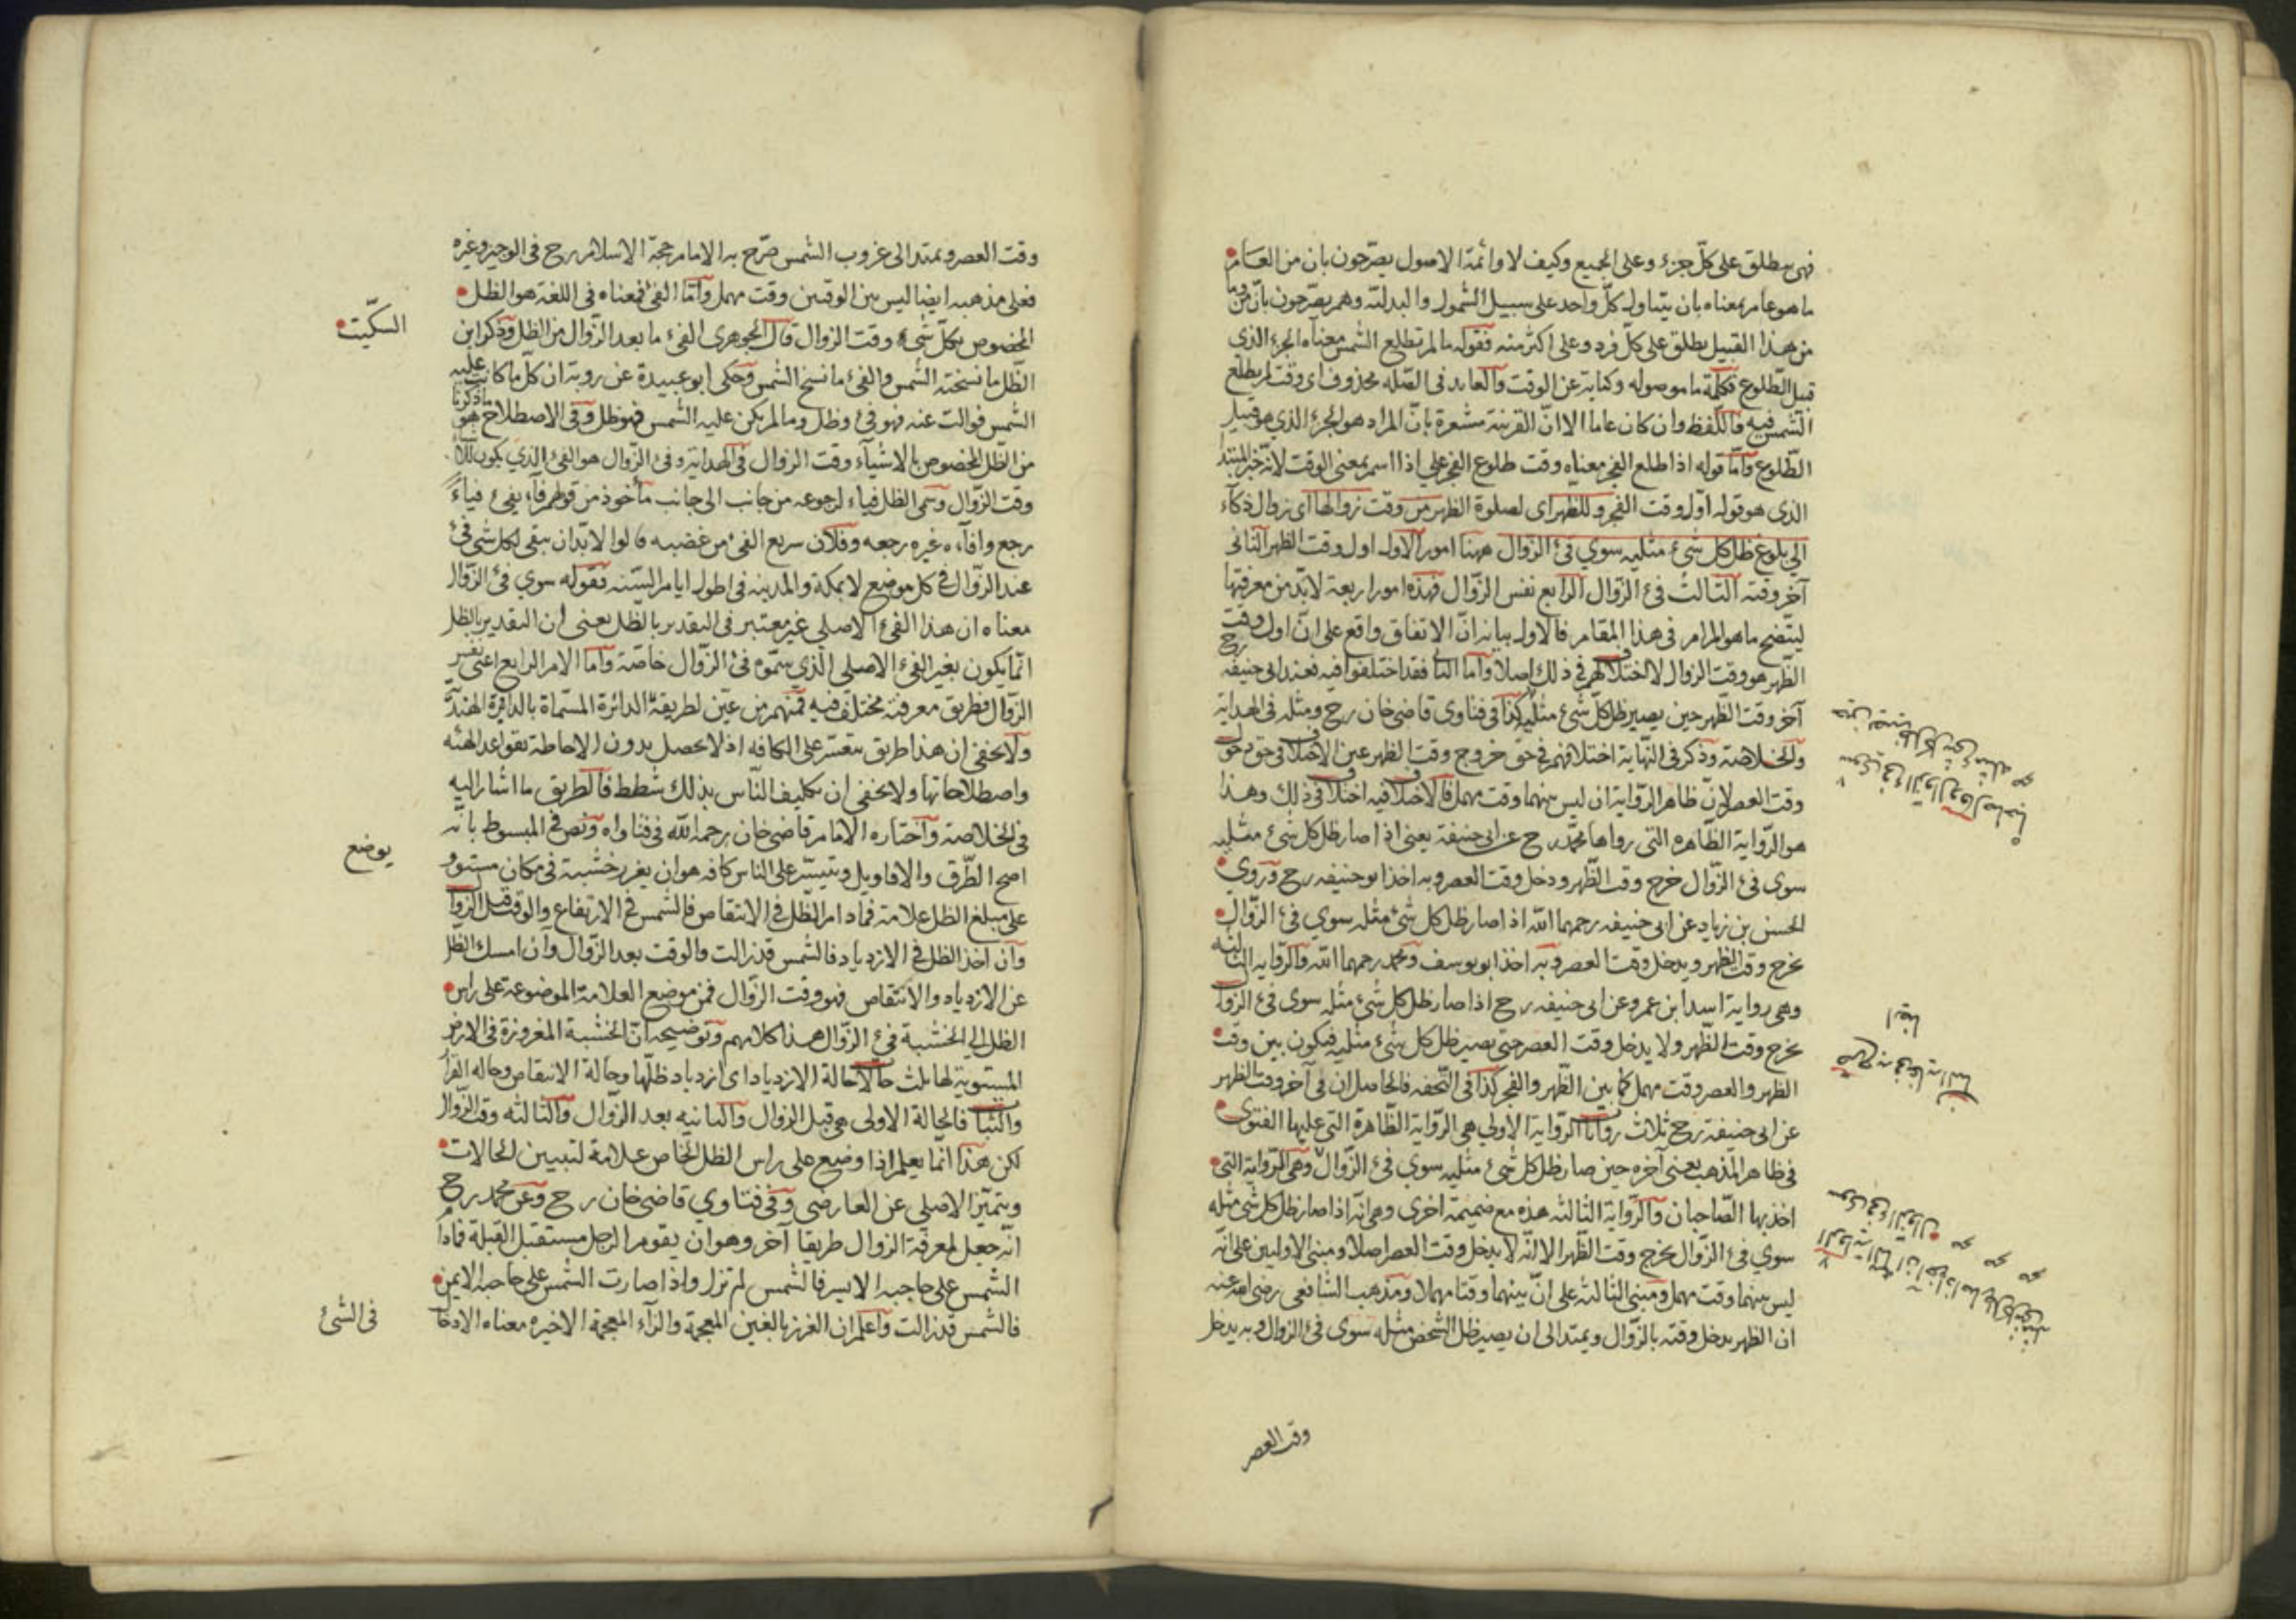 فهى يطلق على كلّ جزء وعلى الجميع وكيف لا وائمّة الاصول يصرّحون بان من العام
ما هو عام بمعناه بان يتناول كلّ واحد على سبيل الشمول والبدليّة وهم يصرّحون بانّ
من هذا القبيل يطلق على كلّ فرد وعلى اكثر منه فقوله ما لم تطلع الشمس معناه الجزء الذى
قبيل الطّلوع فكلمة ما موصوله وكناية عن الوقت والعايد فى الصّله محذوف اى وقت لم يطلع
الشّمس فيه فاللّفظ وان كان عاما الا انّ القرينة مشعرة بانّ المراد هو الجزء الذي هو قبيل
الطّلوع وامّا قوله اذا طلع الفجر معناه وقت طلوع الفجر على اذا اسم بمعنى الوقت لانّه خبر المبتدا
الذى هو قوله اوّل وقت الفجر وللظهر اى لصلوة الظهر من وقت زوالها اى زوال ذكاء
الى بلوغ ظل كل شىء مثليه سوي فئ الزوال ههنا امور الاول اول وقت الظهر الثانى
آخر وقته الثالث فئ الزّوال الرابع نفس الزّوال فهذه امور اربعة لابدّ من معرفتها
ليتّضح ما هو المرام فى هذا المقام فالاول بيانه انّ الاتفاق واقع على انّ اول وقت
الظّهر هو وقت الزوال لا اختلاف لهم فى ذلك اصلا وامّا الثانى فقد اختلفوا فيه فعند ابى حنيفه رح
آخر وقت الظّهر حين يصير ظل كلّ شئ مثليه كذا فى فتاوى قاضى خان رح ومثله فى الهداية
والخلاصة وذكر فى النّهاية اختلافهم فى حق خروج وقت الظهر عين الاختلاف فى حق دخول
وقت العصر لانّ ظاهر الرّواية ان ليس بينهما وقت مهمل فالاختلاف فيه اختلاف فى ذلك وهذا
هو الرّواية الظّاهره التى رواها محمّد رح عن ابى حنيفة يعنى اذا صار ظل كل شئ مثليه
سوى فئ الزّوال خرج وقت الظّهر ودخل وقت العصر وبه اخذ ابو حنيفه رح وروي
الحسن بن زياد عن ابى حنيفه رحمهما الله اذا صار ظل كل شئ مثله سوي فئ الزّوال
يخرج وقت الظهر ويدخل وقت العصر وبه اخذ ابو يوسف ومحمد رحمهما الله والرّوايه الثالثه
وهى رواية اسد ابن عمرو عن ابى حنيفه رح اذا صار ظل كل شئ مثله سوى فئ الزوا
يخرج وقت الظّهر ولا يدخل وقت العصر حتى يصير ظل كل شئ مثليه فيكون بين وقت
الظهر والعصر وقت مهمل كما بين الظّهر والفجر كذا فى التّحفه فالحاصل ان فى آخر وقت الظهر
عن ابى حنيفة رح ثلاث روايات الرّواية الاولي هى الرّواية الظّاهرة التى عليها الفتوى
فى ظاهر المذهب يعنى آخره حين صار ظل كل شئ مثليه سوي فئ الزّوال وهى الرّواية التى
اخذ بها الصّاحبان والرّواية الثالثه هذه مع ضميمة اخرى وهى انّه اذا صار ظل كل شئ مثله
سوي فئ الزّوال يخرج وقت الظّهر الا انّه لا يدخل وقت العصر اصلا ومبنى الاوليين على انّه
ليس بينهما وقت مهمل ومبنى الثّالثة على انّ بينهما وقتا مهملا ومذهب الشّافعى رضى الله عنه
ان الظهر يدخل وقته بالزّوال ويمتد الى ان يصير ظل الشخص مثله سوى فئ الزوال وبه يدخل
وقت العصر
وقت العصر ويمتد الى غروب الشّمس صرّح به الامام حجّة الاسلام رح فى الوجيز وغيره
فعلى مذهبه ايضا ليس بين الوقتين وقت مهمل وامّا الفئ فمعناه فى اللغة هو الظل
المخصوص بكلّ شئ وقت الزوال قال الجوهرى الفئ ما بعد الزّوال من الظل وذكر ابن
السكّيت
الظّل ما نسخته الشّمس والفئ ما نسخ الشّمس وحكى ابو عبيدة عن روبة ان كلّ ما كانت عليه
الشمس فزالت عنه فهو فئ وظل وما لم يكن عليه الشّمس فهو ظل وفى الاصطلاح هو ما ذكرنا
من الظّل المخصوص بالاشيآء وقت الزوال فى الهداية وفئ الزّوال هو الفئ الذي يكون للاشيا
وقت الزّوال وسمى الظل فياء لرجوعه من جانب الى جانب مأخوذ من قولهم فآء يفئ فياء
رجع وافآءه غيره رجعه وفلان سريع الفئ من غضبه قالوا لابدّ ان يبقى لكل شئ فئ
عند الزّوال فى كل موضع لا بمكة والمدينه فى اطول ايام السّنه فقوله سوي فئ الزّوال
معناه ان هذا الفئ الاصلي غير معتبر فى التقدير بالظل يعنى ان التقدير بالظل
انّما يكون بغير الفئ الاصلى الّذي سمّوه فئ الزّوال خاصّة وامّا الامر الرابع اعنى نفس
الزّوال فطريق معرفته مختلف فيه فمنهم من عيّن لطريقه الدائرة المسمّاة بالدائرة الهنديّة
ولا يخفى ان هذا طريق يتعسّر على الكافه اذ لا يحصل بدون الاحاطة بقواعد الهيئه
واصطلاحاتها ولا يخفى ان تكليف النّاس بذلك شطط فالطريق ما اشار اليه
فى الخلاصة واختاره الامام قاضى خان رحمه الله فى فتاواه ونص فى المبسوط بانّه
اصح الطّرق والاقاويل ويتيسّر على الناس كافه هو ان يغرز خشبة فى مكان مستوٍ و
يوضع
على مبلغ الظل علامة فما دام الظّل فى الانتقاص فالشمس فى الارتفاع والوقت قبل الزوا
وان اخذ الظل فى الازدياد فالشمس قد زالت والوقت بعد الزّوال وان امسك الظّل
عن الازدياد والانتقاص فهو وقت الزّوال فمن موضع العلامة الموضوعة على راس
الظل الي الخشبة فئ الزّوال هذا كلامهم وتوضيحه انّ الخشبة المغروزة فى الارض
المستوية لها ثلث حالات حالة الازدياد اى ازدياد ظلّها وحالة الانتقاص وحاله القرار
والثبات فالحالة الاولى هى قبل الزوال والثانيه بعد الزّوال والثالثه وقت الزّوال
لكن هذا انّما يعلم اذا وضع على راس الظل الخاص علامة لتبيين الحالات
ويتميّز الاصلي عن العارضى وفى فتاوي قاضى خان رح وعن محمد رح
انّه جعل لمعرفة الزوال طريقا آخر وهو ان يقوم الرجل مستقبل القبلة فما دام
الشّمس على حاجبه الايسر فالشّمس لم تزل واذا صارت الشّمس على حاجبه الايمن
فالشّمس قد زالت واعلم ان الغرز بالغين المعجمة والزآء المعجمة الاخيره معناه الادخال
فى الشئ